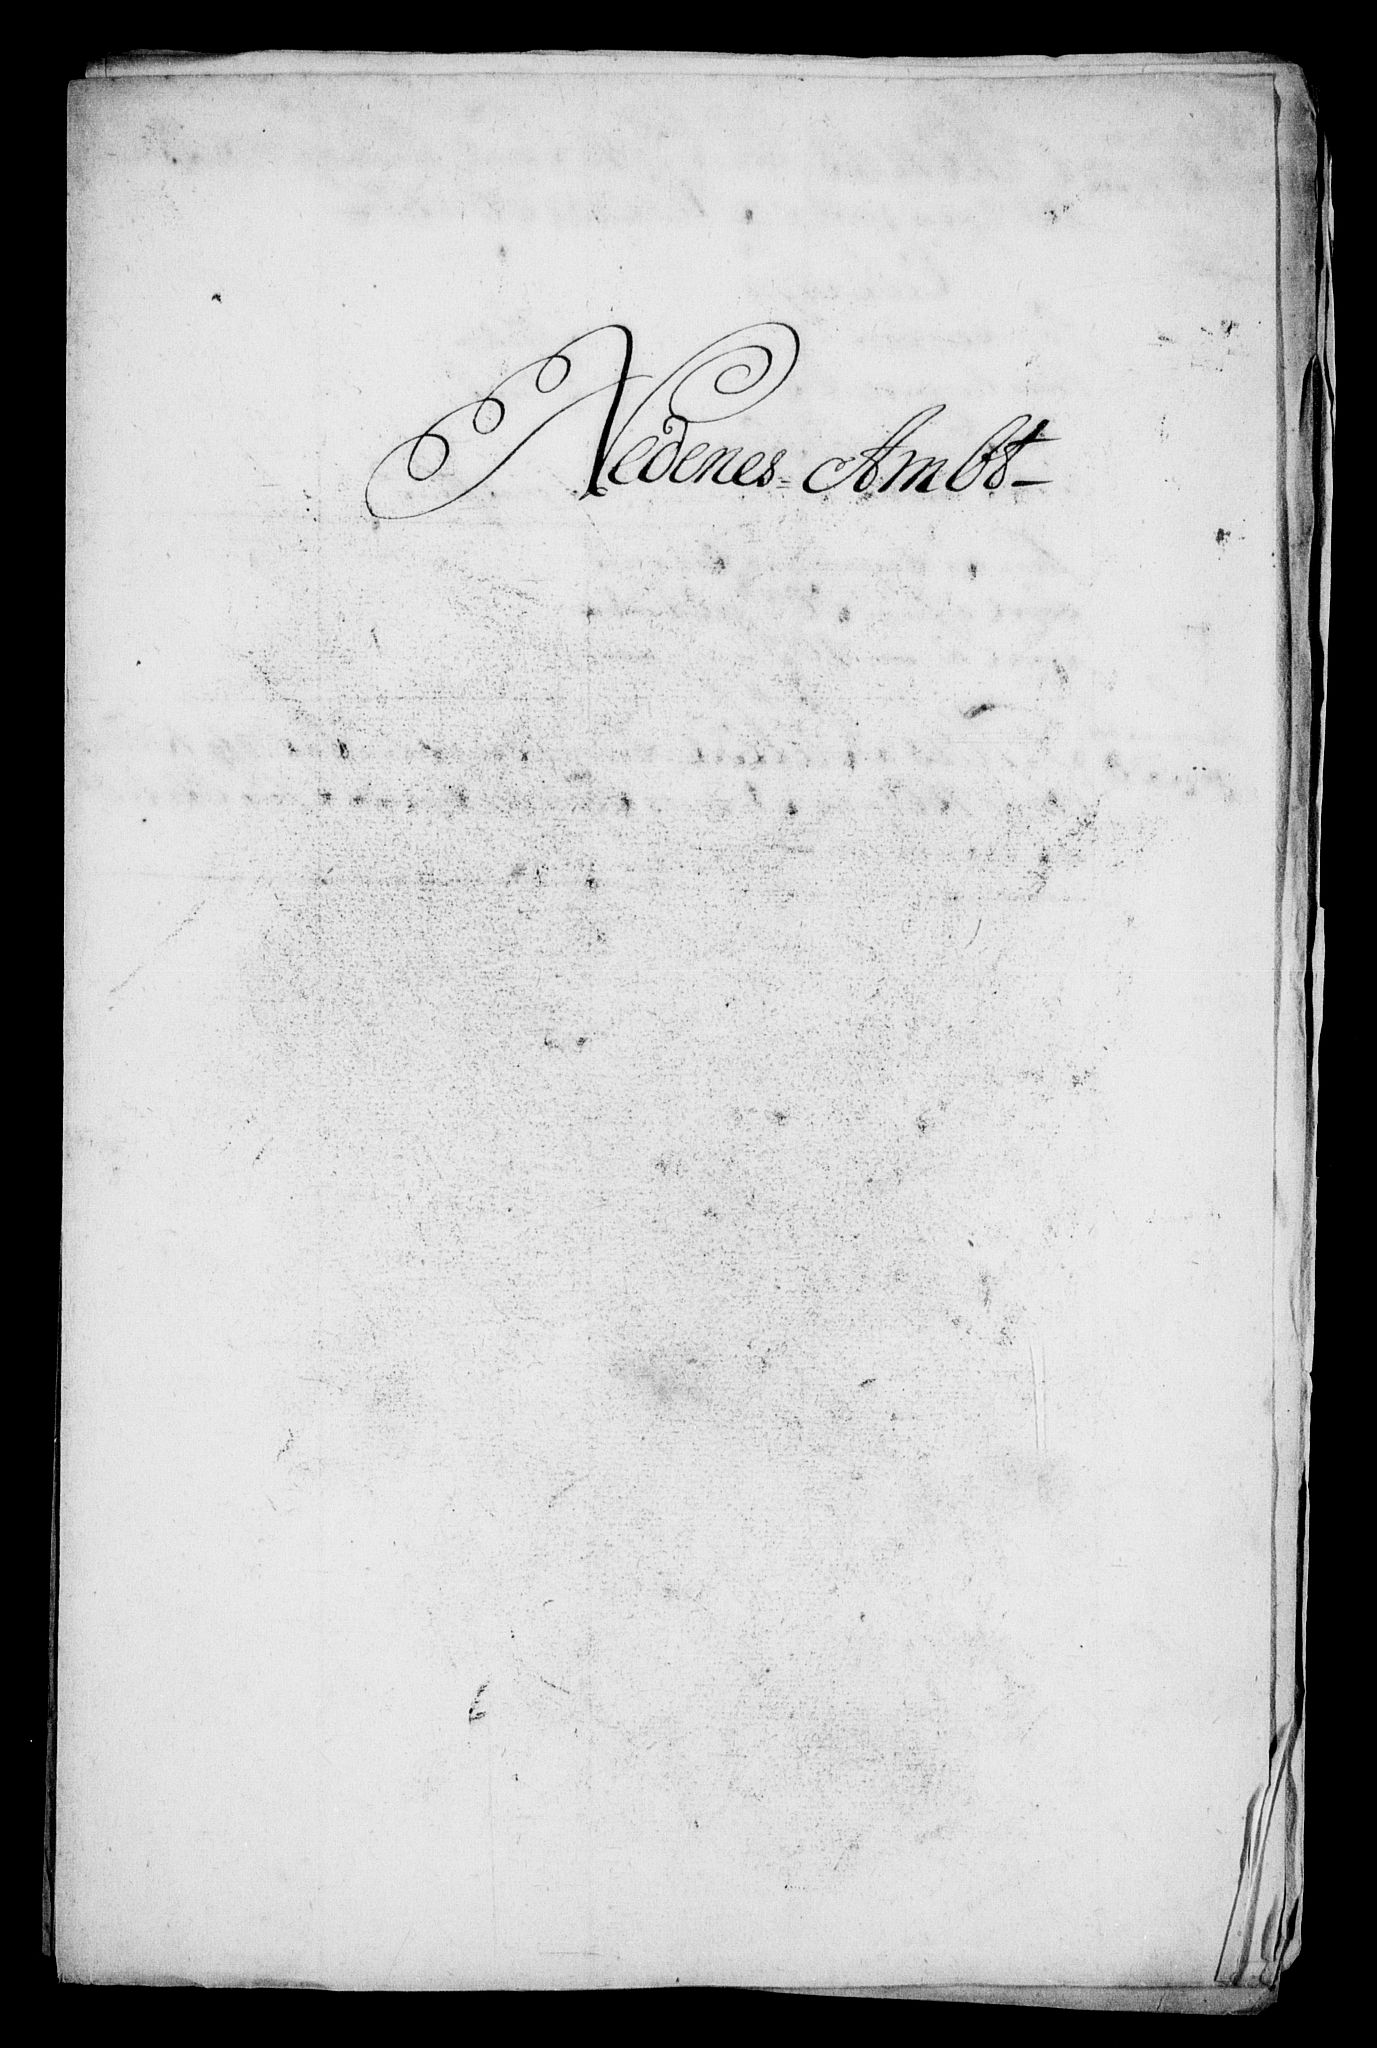 Nedenes Ambt